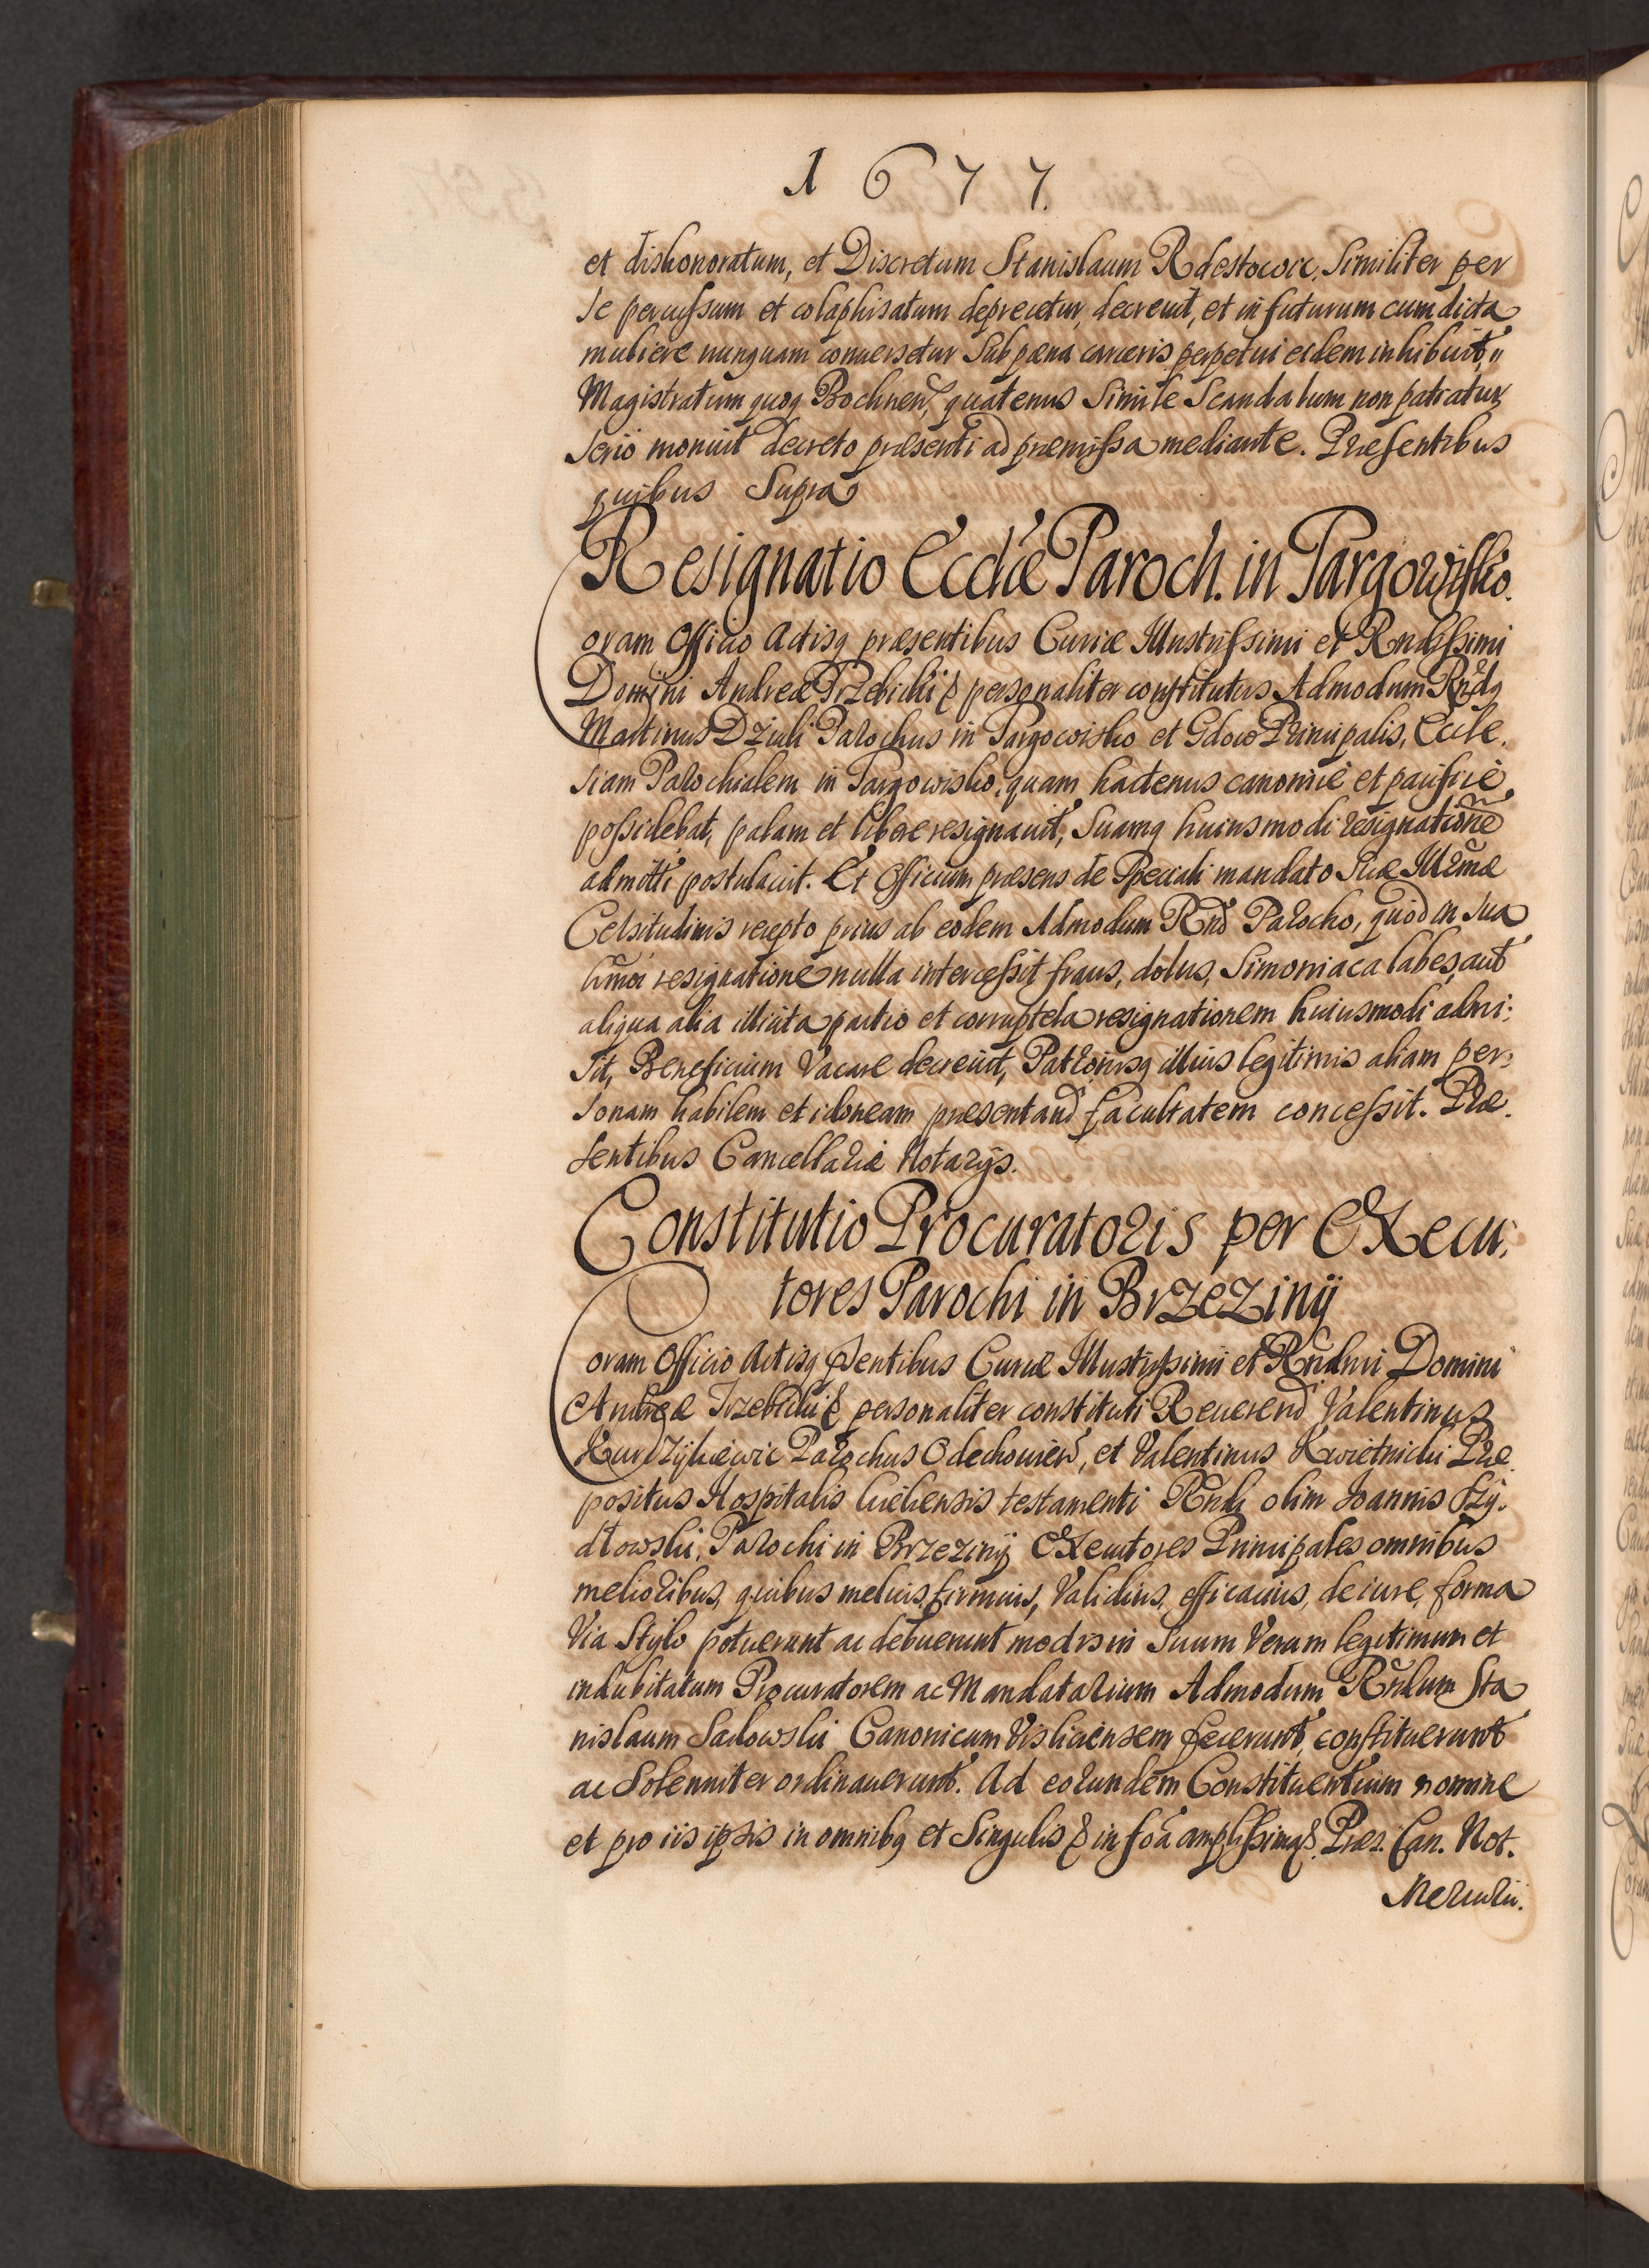 1677.
et dishonoratum, et Discretum Stanislaum Rdestowic, Similiter per
se percussum et colaphisatum deprecetur, decreuit, et in futurum cum dicta
muliere nunquam conuersetur Sub pœna carceris perpetui eidem inhibuit,
Magistratum quoq Bochnen, quatenus Simile Scandalum non patiatur,
serio monuit decreto præsenti ad præmissa mediante. Præsentibus
quibus Supra
Resignatio Ecclīæ Paroch. in Targowisko.
oram Officio Actisq præsentibus Curiæ Illustrissimi et Rndissimi
Domini Andreæ Trzebicki & personaliter constitutus Admodum Rndq
Martinus Dziuli Parochus in Targowisko et Gdow Principalis, Eccle.
siam Parochialem in Targowisko, quam hactenus canonicè et pacificè,
possidebat, palam et liberè resignauit, Suamq huiusmodi resignatione
admitti postulauit. Et Officium præsens de Speciali mandato Suæ Illrmæ
Celsitudinis recepto prius ab eodem Admodum Rnd Parocho, quòd in sua
hmōi resignatione nulla intercessit fraus, dolus, Simoniaca labes, aut
aliqua alia illicita pactio et corruptela resignationem huiusmodi admi:
sit, Beneficium Vacare decreuit, Patronisq illius legitimis aliam per:
sonam habilem et idoneam præsentand facultatem concessit. Præ.
sentibus Cancellariæ Notarijs.
Constitutio Procuratoris per Execu:
tores Parochi in Brzezinij
oram Officio Actisq psentibus Curiæ Illustrissimi et Rndmi Domini
Andreæ Trzebicki & personaliter constituti Reuerend Valentinus
Kurdzykiewic Parochus Odechouien, et Valentinus Kwietnicki Præ.
positus Hospitalis testamenti Rndi olim Joannis Szy.
dłowski, Parochi in Brzezinij Executores Principales omnibus
melioribus, quibus melius, firmius, Validius, efficacius, de iure, forma
Via Stylo potuerunt ac debuerunt modis in Suum Verum legitimum et
indubitatum Procuratorem ac Mandatarium Admodum Rndum Sta
nislaum Sadowski Canonicum Visliciensem fecerunt, constituerunt
ac Solenniter ordinauerunt. Ad eorundem Constituentium nomine
et pro iis ipsis in omnibq et Singulis & in foa amplissima &. Præs. Can. Not.
Mercurii.